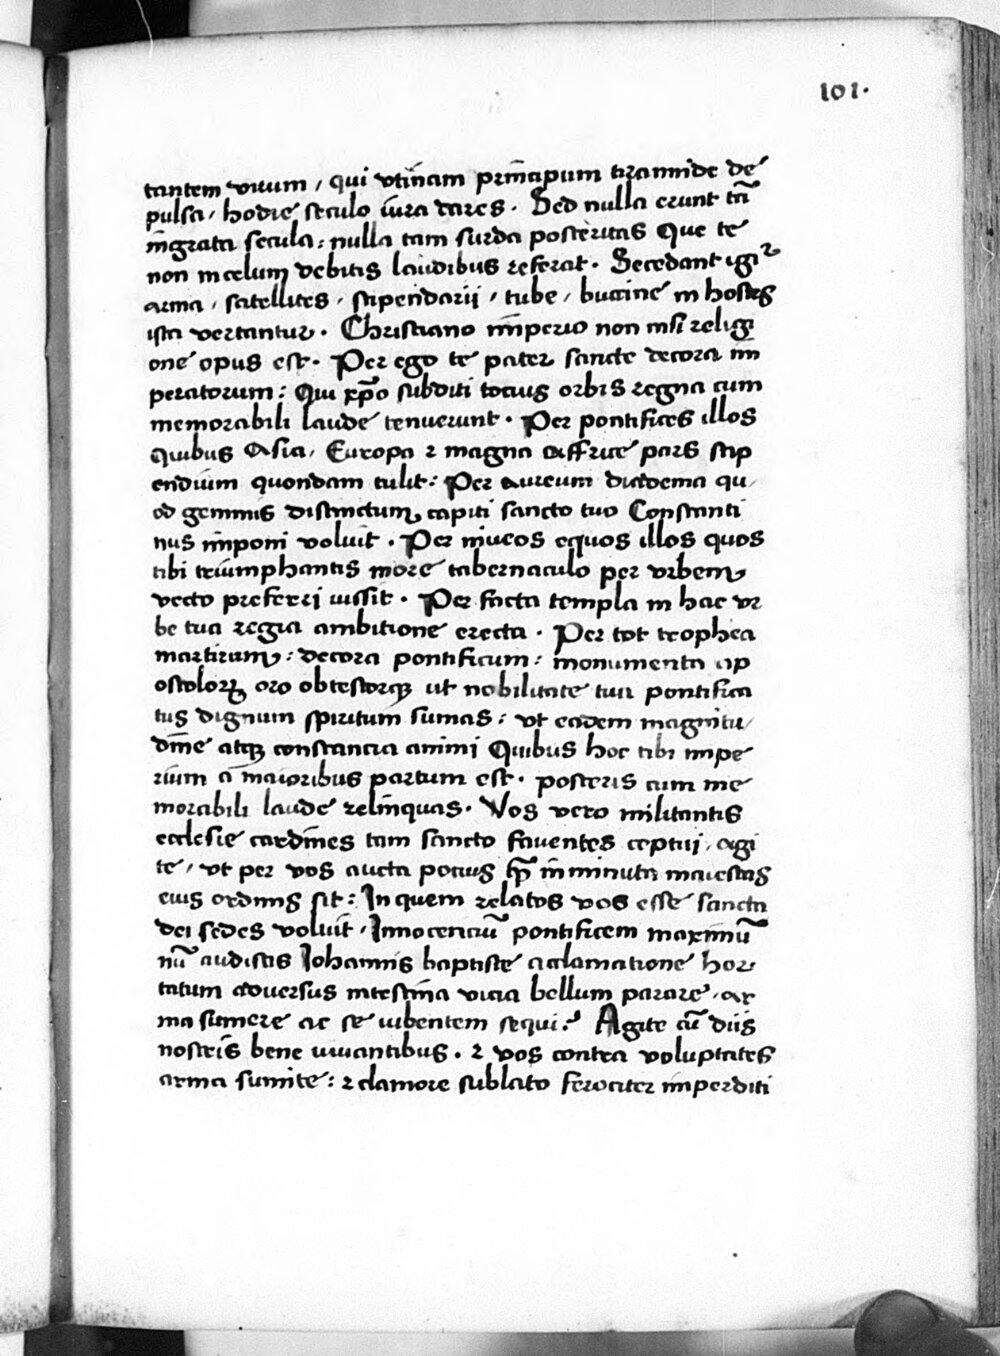 101.
tantem viuum / qui vtinam principum tirannide de
pulsa / hodie seculo iura dares . Sed nulla erunt tā
ingrata secula : nulla tam surda posteritas Que te
non in celum debitis laudibus referat . Secedant igiᵗ
arma / satellites / stipendarij / tube / buccine in hostes
ista vertantur . Christiano imperio non nisi religi
one opus est . Per ego te pater sancte decora im
peratorum : Qui xp̄o subditi tocius orbis regna cum
memorabili laude tenuerunt . Per pontifices illos
quibus Asia / Europa ⁊ magna affrice pars stip
endium quondam tulit : Per aureum diadema qu
od gemmis distinctum capiti sancto tuo Constanti
nus imponi voluit . Per niueos equos illos quos
tibi triumphantis more tabernaculo per vrbem
vecto preferri iussit . Per facta templa in hac vr
be tua regia ambitione erecta . Per tot trophea
martirum : decora pontificum : monumenta ap
ostoloꝝ oro obtestorqꝫ ut nobilitate tui pontifica
tus dignum spiritum sumas : vt eadem magnitu
dīne atqꝫ constancia animi Quibus hoc tibi impe
rium a maioribus partum est . posteris cum me
morabili laude relinquas . Vos vero militantis
ecclesie cardīnes tam sancto fauentes ceptui / agi
te / vt per vos aucta pocius qp̄ inminuta maiestas
eius ordinis sit : In quem relatos vos esse sancta
dei sedes voluit . Innocenciū pontificem maximū
nū audistis Iohannis baptiste acclamatione hor
tatum aduersus intestina vicia bellum parare / ar
ma sumere ac se iubentem sequi . Agite cū diis
nostris bene iuuantibus . ⁊ vos contra voluptates
arma sumite : ⁊ clamore sublato ferociter imperditi